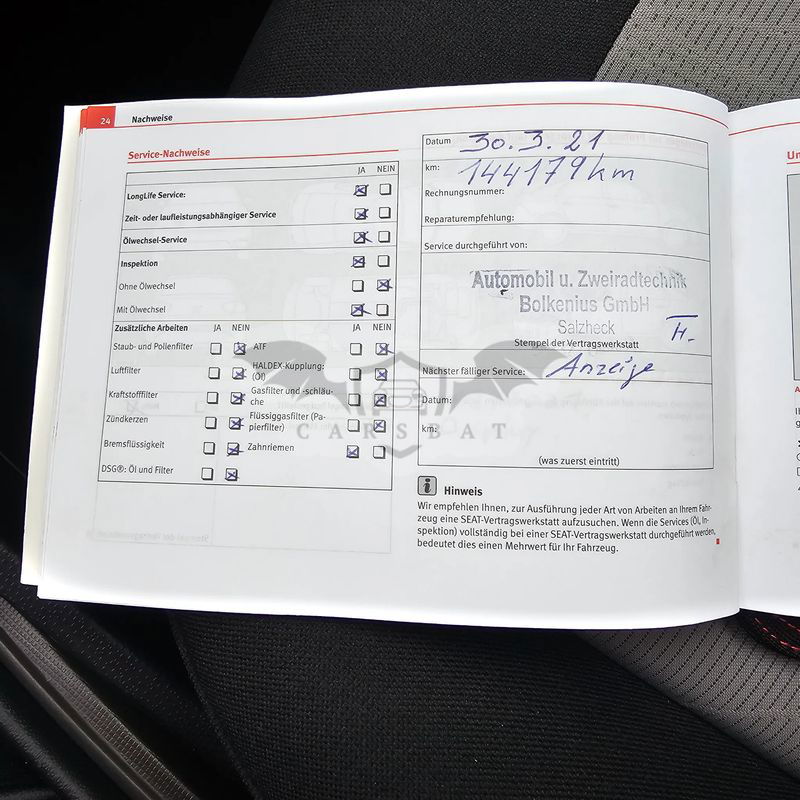 24 Nachweise
Service-Nachweise
JA NEIN
LongLife Service:
Zeit- oder laufleistungsabhängiger Service
Ölwechsel-Service
Inspektion
Ohne Ölwechsel
Mit Ölwechsel
Zusätzliche Arbeiten JA NEIN JA NEIN
Staub- und Pollenfilter
ATF
Luftfilter
HALDEX-Kupplung:
(Öl)
Kraftstofffilter
Gasfilter und -schläu-
che
Zündkerzen
Flüssiggasfilter (Pa-
pierfilter)
Bremsflüssigkeit
Zahnriemen
DSG®: Öl und Filter
Datum 30.3.21
km: 144179 km
Rechnungsnummer:
Reparaturempfehlung:
Service durchgeführt von:
Automobil u. Zweiradtechnik
Bolkenius GmbH
Salzheck
Stempel der Vertragswerkstatt
H.
Nächster fälliger Service: Anzeige
Datum:
km:
(was zuerst eintritt)
CARSBAT
i Hinweis
Wir empfehlen Ihnen, zur Ausführung jeder Art von Arbeiten an Ihrem Fahr-
zeug eine SEAT-Vertragswerkstatt aufzusuchen. Wenn die Services (Öl, In-
spektion) vollständig bei einer SEAT-Vertragswerkstatt durchgeführt werden,
bedeutet dies einen Mehrwert für Ihr Fahrzeug.